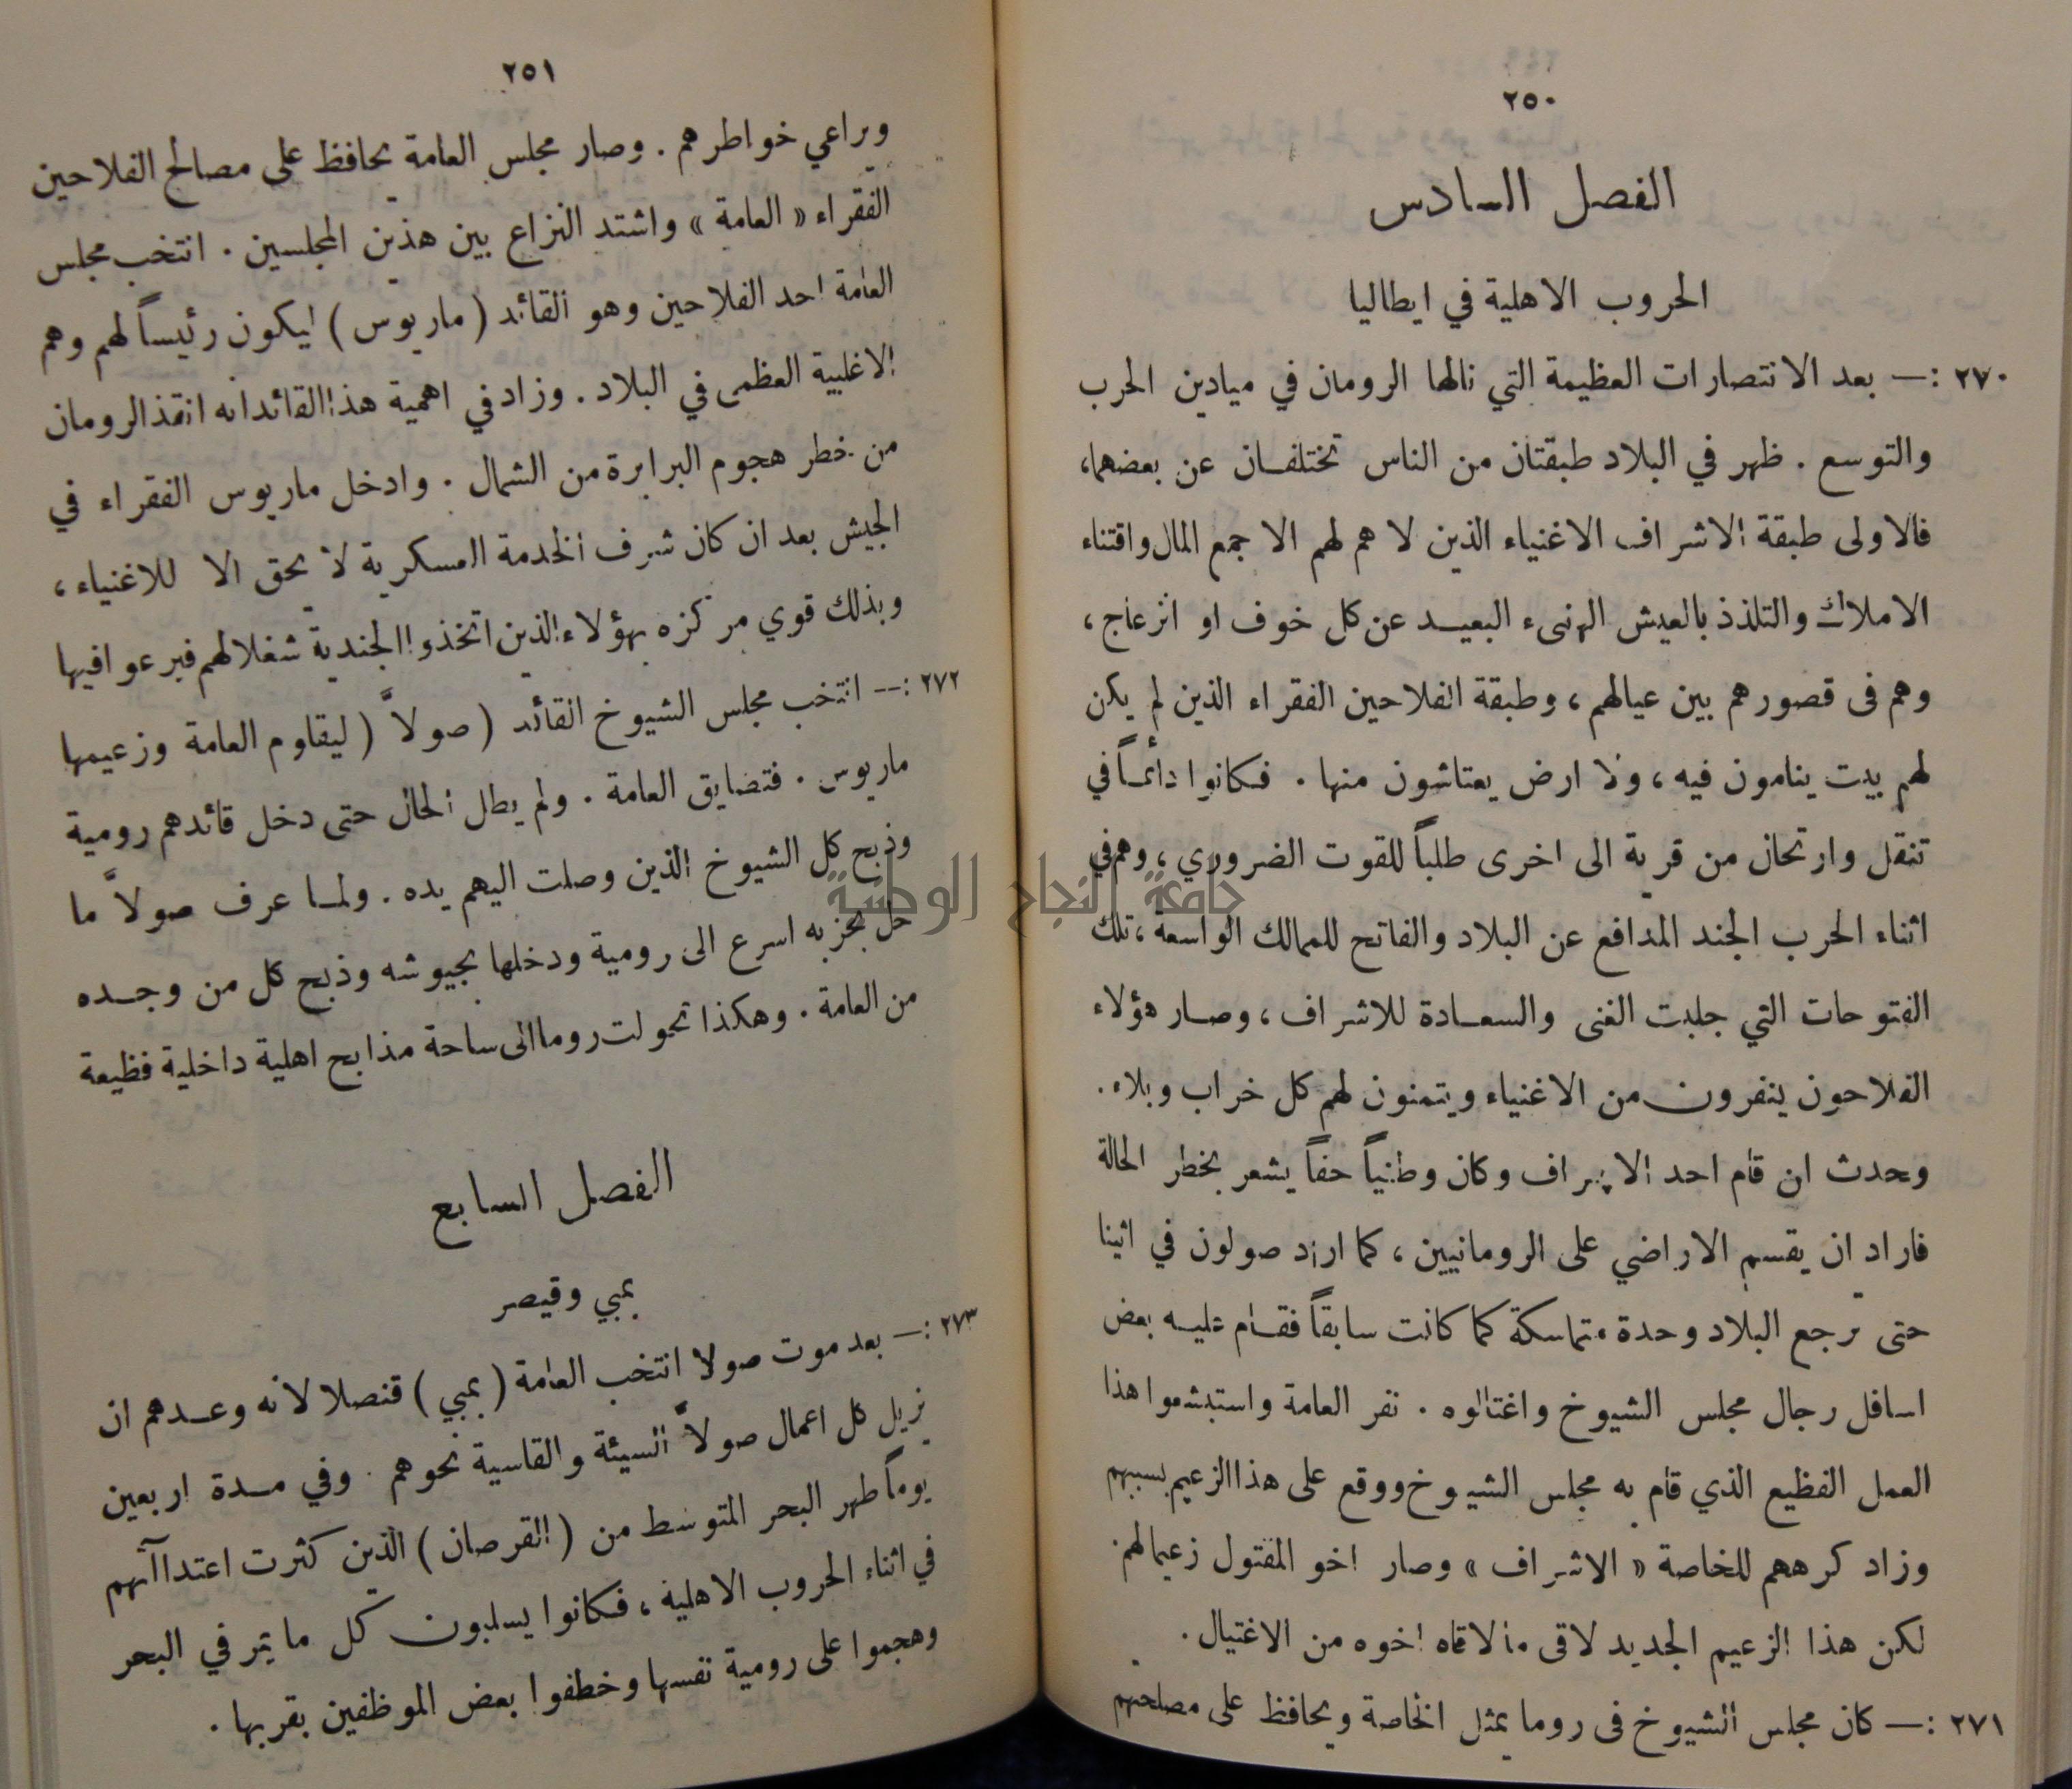 ٢٥٠
الفصل السادس
الحروب الاهلية في ايطاليا
٢٧٠ :— بعد الانتصارات العظيمة التي نالها الرومان في ميادين الحرب
والتوسع . ظهر في البلاد طبقتان من الناس تختلفان عن بعضهما،
فالاولى طبقة الاشراف الاغنياء الذين لا هم لهم الا جمع المال واقتناء
الاملاك والتلذذ بالعيش الهنىء البعيد عن كل خوف او انزعاج ،
وهم فى قصورهم بين عيالهم ، وطبقة الفلاحين الفقراء الذين لم يكن
لهم بيت ينامون فيه ، ولا ارض يعتاشون منها . فكانوا دائماً في
تنقل وارتحال من قرية الى اخرى طلباً للقوت الضروري ، وهم في
اثناء الحرب الجند المدافع عن البلاد والفاتح للممالك الواسعة ، تلك
الفتوحات التي جلبت الغنى والسعادة للاشراف ، وصار هؤلاء
الفلاحون ينفرون من الاغنياء ويتمنون لهم كل خراب وبلاء .
وحدث ان قام احد الاشراف وكان وطنياً حقاً يشعر بخطر الحالة
فاراد ان يقسم الاراضي على الرومانيين ، كما اراد صولون في اثينا
حتى ترجع البلاد وحدة متماسكة كما كانت سابقاً فقام عليه بعض
اسافل رجال مجلس الشيوخ واغتالوه . نفر العامة واستبشعوا هذا
العمل الفظيع الذي قام به مجلس الشيوخ ووقع على هذا الزعيم بسببهم
وزاد كرههم للخاصة « الاشراف » وصار اخو المقتول زعيما لهم .
لكن هذا الزعيم الجديد لاقى ما لاقاه اخوه من الاغتيال .
٢٧١ :— كان مجلس الشيوخ فى روما يمثل الخاصة ويحافظ على مصلحتهم
٢٥١
ويراعي خواطرهم . وصار مجلس العامة يحافظ على مصالح الفلاحين
الفقراء « العامة » واشتد النزاع بين هذين المجلسين . انتخب مجلس
العامة احد الفلاحين وهو القائد ( ماريوس ) ليكون رئيساً لهم وهم
الاغلبية العظمى في البلاد . وزاد في اهمية هذا القائد انه انقذ الرومان
من خطر هجوم البرابرة من الشمال . وادخل ماريوس الفقراء في
الجيش بعد ان كان شرف الخدمة العسكرية لا يحق الا للاغنياء ،
وبذلك قوي مركزه بهؤلاء الذين اتخذوا الجندية شغلا لهم فبرعوا فيها
٢٧٢ :-- انتخب مجلس الشيوخ القائد ( صولاً ( ليقاوم العامة وزعيمها
ماريوس . فتضايق العامة . ولم يطل الحال حتى دخل قائدهم رومية
وذبح كل الشيوخ الذين وصلت اليهم يده . ولما عرف صولاً ما
حل بحزبه اسرع الى رومية ودخلها بجيوشه وذبح كل من وجده
من العامة . وهكذا تحولت روما الى ساحة مذابح اهلية داخلية فظيعة
الفصل السابع
بمبي وقيصر
٢٧٣ :— بعد موت صولا انتخب العامة ( بمبي ) قنصلا لانه وعدهم ان
يزيل كل اعمال صولاً السيئة والقاسية نحوهم . وفي مدة اربعين
يوماً طهر البحر المتوسط من ( القرصان ) الذين كثرت اعتداآتهم
في اثناء الحروب الاهلية ، فكانوا يسلبون كل ما يمر في البحر
وهجموا على رومية نفسها وخطفوا بعض الموظفين بقربها .
جامعة النجاح الوطنية